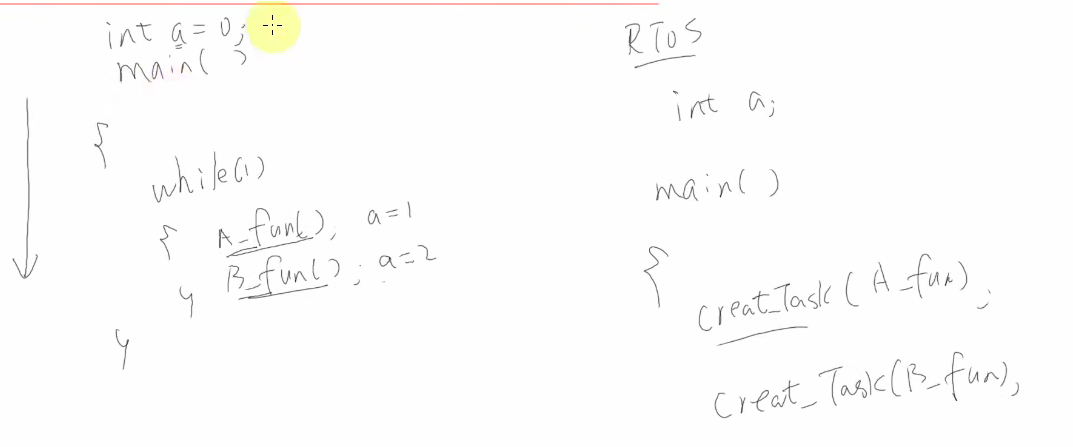 int a = 0;
main( )
{
while(1)
{ A_fun(), a=1
B_fun(); a=2
}
}
RTOS
int a;
main( )
{
creat_Task ( A_fun) ;
creat_Task(B_fun),